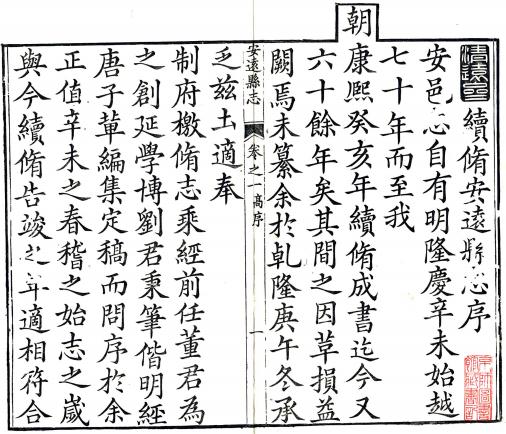 續脩安遠縣志序
安邑志自有明隆慶辛未始越
七十年而至我
朝康熙癸亥年續脩成書迄今又
六十餘年矣其間之因革損益
闕焉未纂余於乹隆庚午冬承
安遠縣志 卷之一 高序 一
乏兹土適奉
制府檄脩志乘經前任董君為
之創延學博劉君秉筆偕明經
唐子葷編集定稿而問序於余
正值辛未之春稽之始志之歲
與今續脩告竣之年適相符合